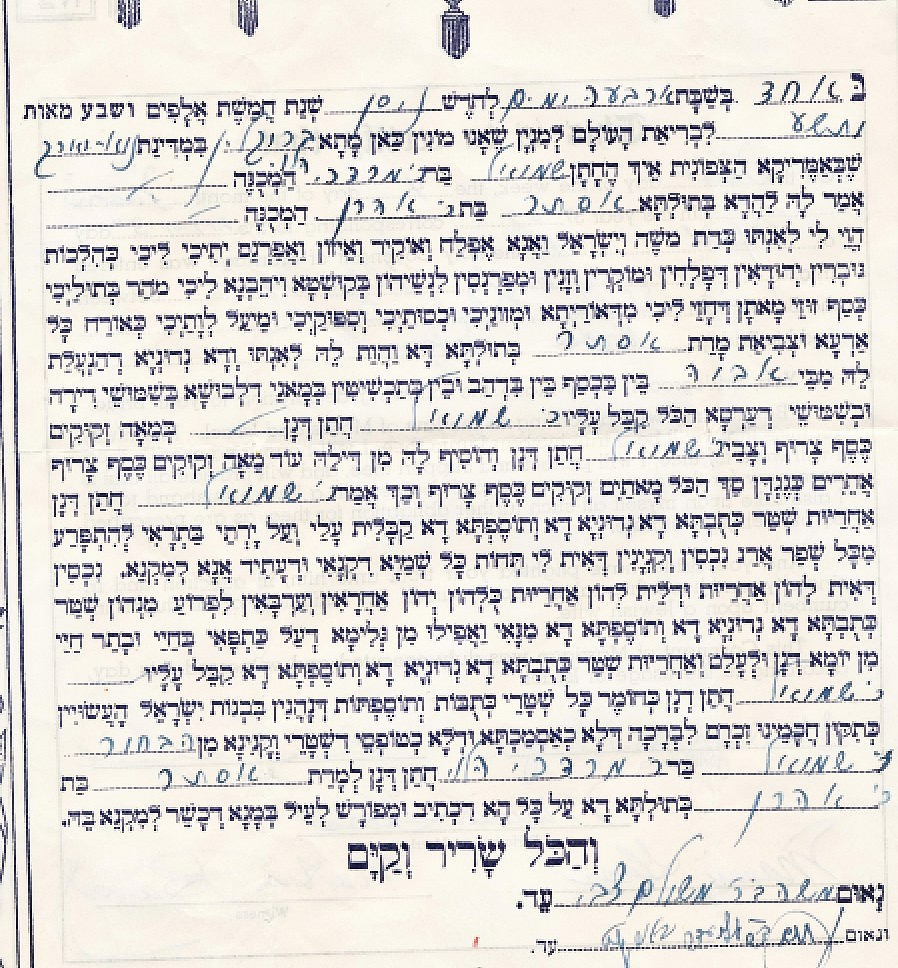 ב אחד בשבת ארבעה ימים לחדש ניסן שנת חמשת אלפים ושבע מאות
ותשע לבריאת העולם למנין שאנו מונין כאן מתא ברוקלין במדינת נוא-יארק
שבאמריקא הצפונית איך החתן שמואל בת ר' מרדכי הלוי המכנה
אמר לה להדא בתולתא אסתר בת ר' אהרן המכנה
הוי לי לאנתו כדת משה וישראל ואנא אפלח ואוקיר ואיזון ואפרנס יתיכי ליכי כהלכות
גוברין יהודאין דפלחין ומוקרין וזנין ומפרנסין לנשיהון בקושטא ויהבנא ליכי מהר בתוליכי
כסף זוזי מאתן דחזי ליכי מדאוריתא ומזוניכי וכסותיכי וסיפוקיכי ומיעל לותיכי כאורח כל
ארעא וצביאת מרת אסתר בתולתא דא והות לה לאנתו ודא נדוניא דהנעלת
לה מבי אבוה בין בכסף בין בדהב ובין בתכשיטין במאני דלבושא בשמושי דירה
ובשמושי דערסא הכל קבל עליו ר' שמואל חתן דנן במאה זקוקים
כסף צרוף וצבי ר' שמואל חתן דנן והוסיף לה מן דילה עוד מאה זקוקים כסף צרוף
אחרים כנגדן סך הכל מאתים זקוקים כסף צרוף וכך אמר ר' שמואל חתן דנן
אחריות שטר כתובתא דא נדוניא דא ותוספתא דא קבלית עלי ועל ירתי בתראי להתפרע
מכל שפר ארג נכסין וקנינין דאית לי תחות כל שמיא דקנאי ודעתיד אנא למקנא. נכסין
דאית להון אחריות ודלית להון אחריות כלהון יהון אחראין וערבאין לפרוע מנהון שטר
כתובתא דא נדוניא דא ותוספתא דא מנאי ואפילו מן גלימא דעל כתפאי בחיי ובתר חיי
מן יומא דנן ולעלם ואחריות שטר כתובתא דא נדוניא דא ותוספתא דא קבל עליו
ר' שמואל חתן דנן כחומר כל שטרי כתבות ותוספתות דנהגין בבנות ישראל העשויין
כתקון חכמינו זכרם לברכה דלא כאסמכתא ודלא כטופסי דשטרי וקנינא מן הבחור
ר' שמואל בר ר' מרדכי הלוי חתן דנן למרת אסתר בת
ר' אהרן בתולתא דא על כל הא דכתיב ומפורש לעיל במנא דכשר למקנא בה.
והכל שריר וקים
נאום משה בר משולם צבי עד.
ונאום עד.